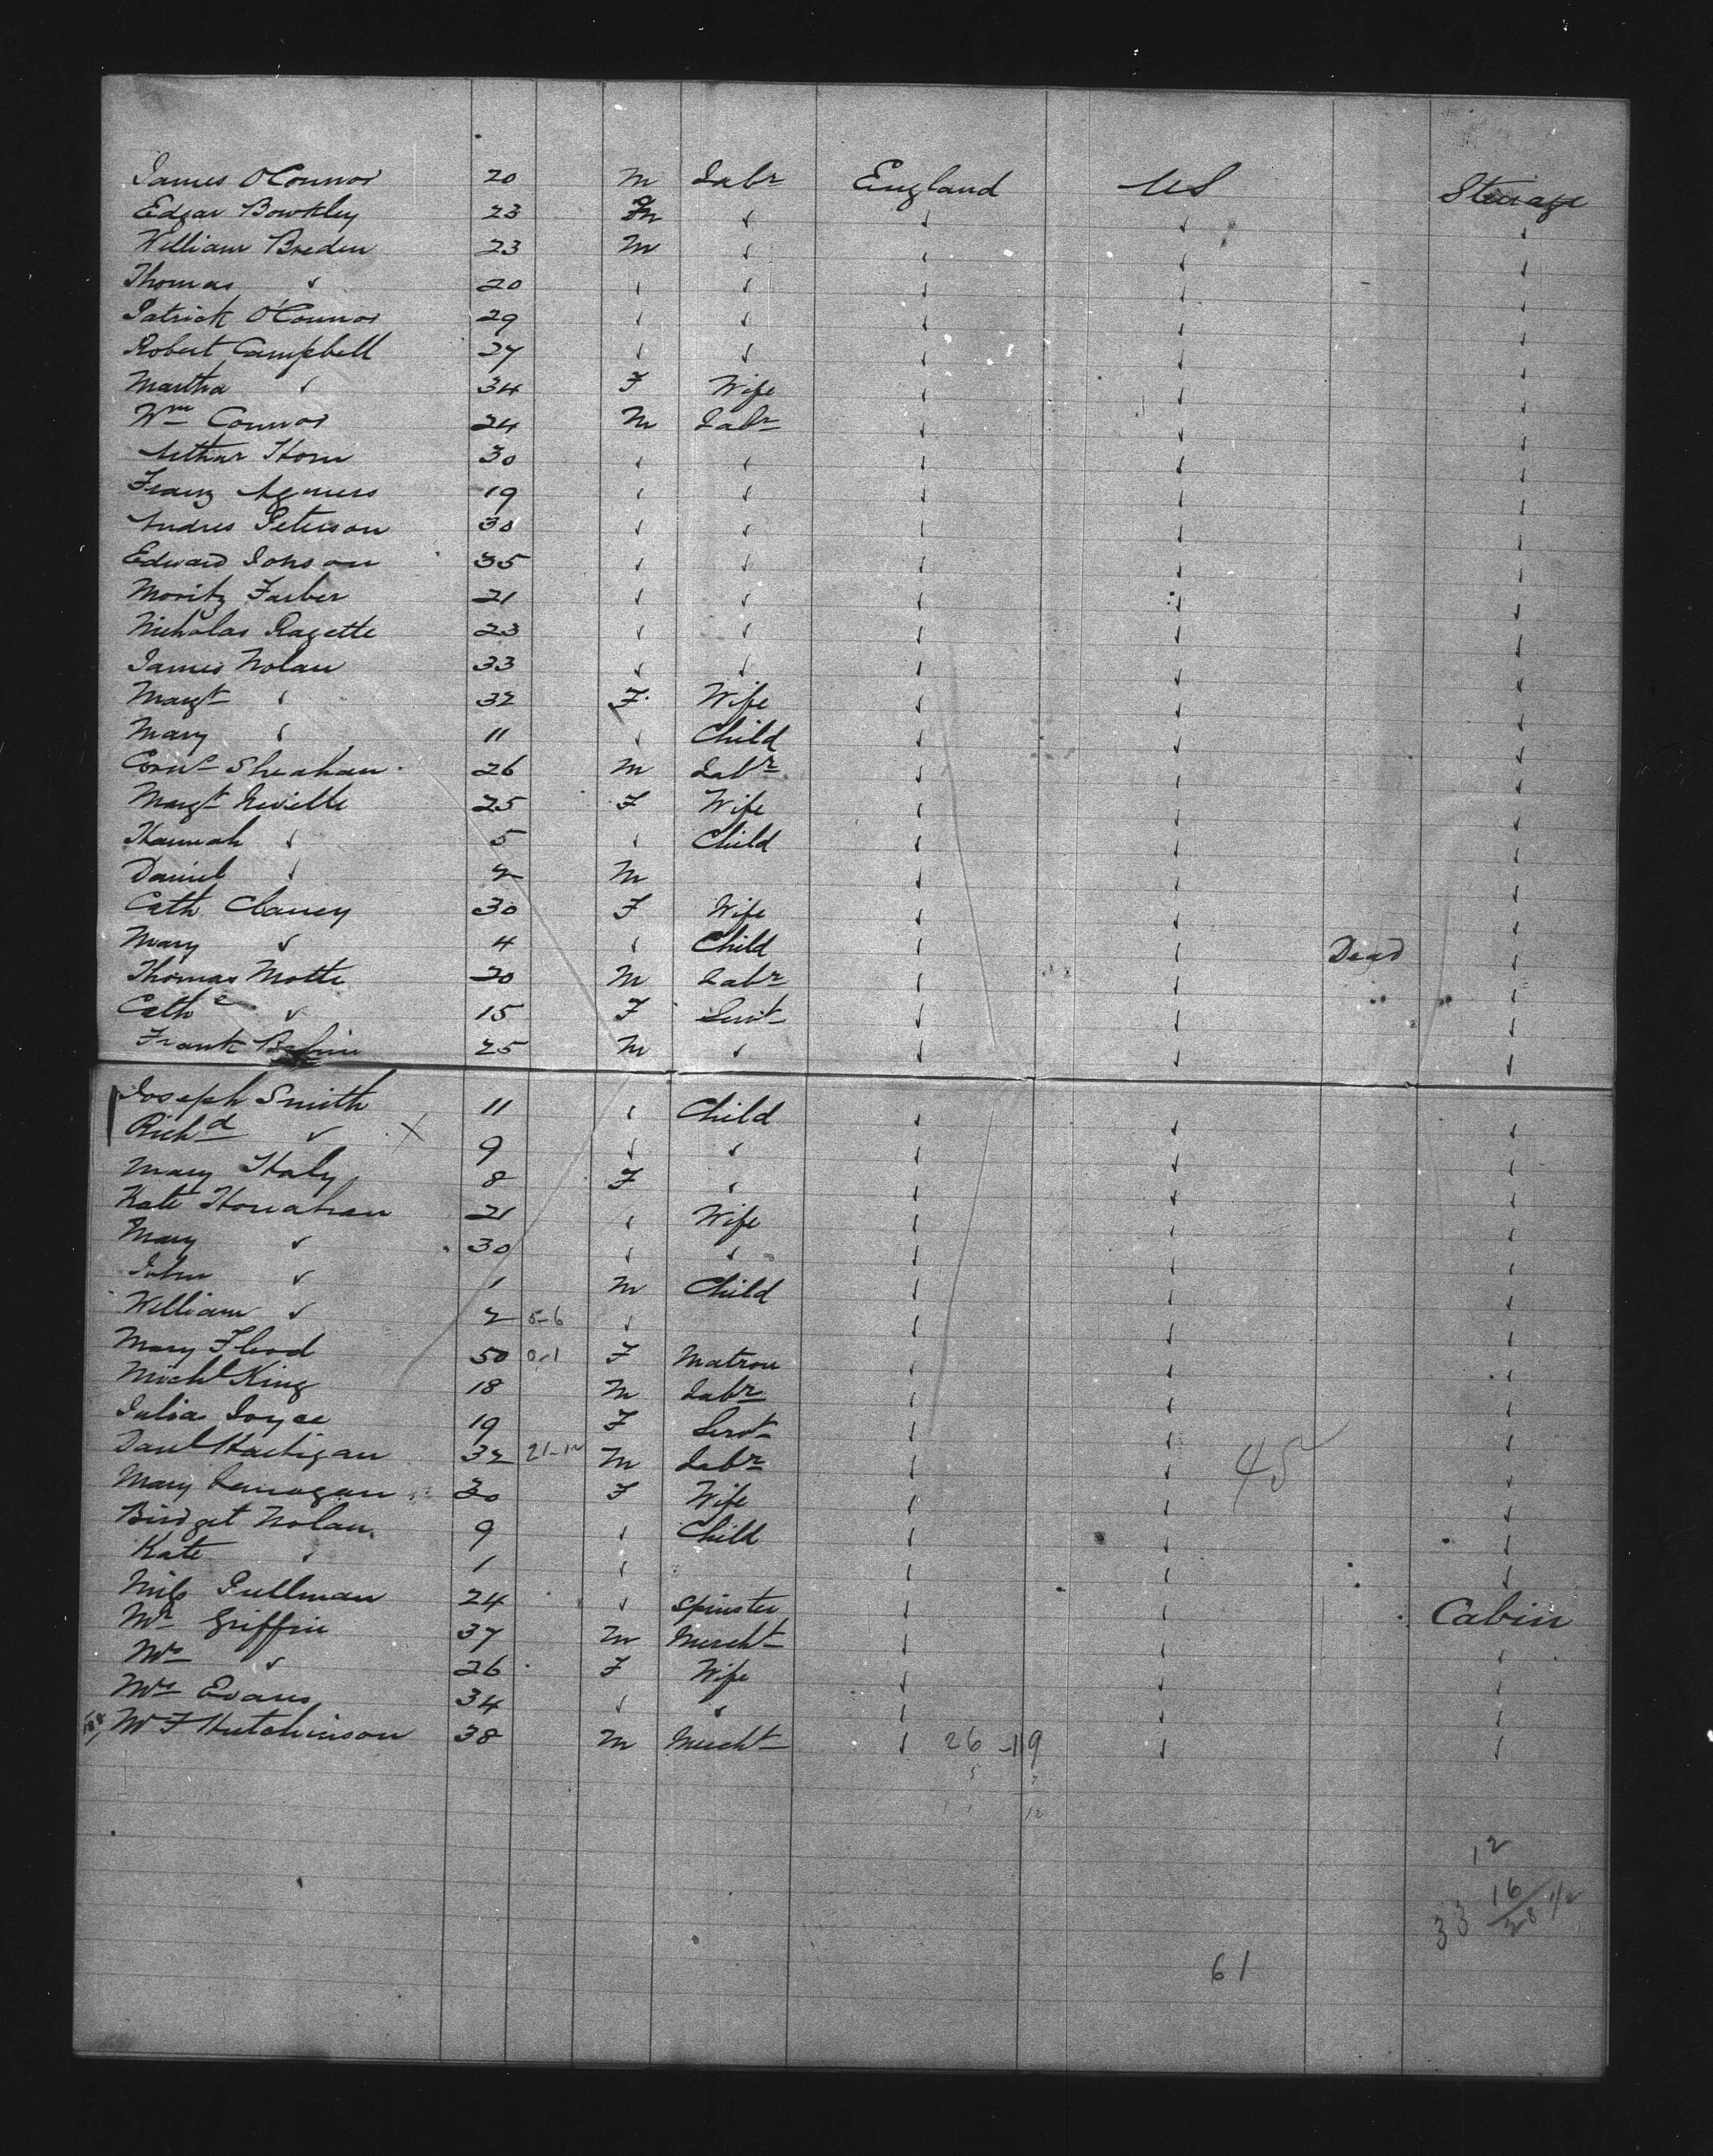 James O'Connor 20 M Labr England US Steerage
Edgar Bowkley 23 M ✓ ✓ ✓ ✓
William Breden 23 M ✓ ✓ ✓ ✓
Thomas ✓ 20 ✓ ✓ ✓ ✓ ✓
Patrick O'Connor 29 ✓ ✓ ✓ ✓ ✓
Robert Campbell 27 ✓ ✓ ✓ ✓ ✓
Martha ✓ 34 F Wife ✓ ✓ ✓
Wm Connor 24 M Labr ✓ ✓ ✓
Arthur Horn 30 ✓ ✓ ✓ ✓ ✓
Franz 19 ✓ ✓ ✓ ✓ ✓
Andres Peterson 30 ✓ ✓ ✓ ✓ ✓
Edward Jonson 35 ✓ ✓ ✓ ✓ ✓
Moritz Farber 21 ✓ ✓ ✓ ✓ ✓
Nicholas Ragette 23 ✓ ✓ ✓ ✓ ✓
James Nolan 33 ✓ ✓ ✓ ✓ ✓
Margt ✓ 32 F Wife ✓ ✓ ✓
Mary ✓ 11 ✓ Child ✓ ✓ ✓
Corns Sheahan 26 M Labr ✓ ✓ ✓
Margt Neville 25 F Wife ✓ ✓ ✓
Hannah ✓ 5 ✓ Child ✓ ✓ ✓
Daniel ✓ 2 M ✓ ✓ ✓
Cath Clancy 30 F Wife ✓ ✓ ✓
Mary ✓ 4 ✓ Child ✓ ✓ Dead ✓
Thomas Motte 20 M Labr ✓ ✓ ✓
Cathe ✓ 15 F Servt ✓ ✓ ✓
Frank 25 M ✓ ✓ ✓ ✓
Joseph Smith 11 ✓ Child ✓ ✓ ✓
Richd ✓ X 9 ✓ ✓ ✓ ✓ ✓
Mary Haly 8 F ✓ ✓ ✓ ✓
Kate Honahan 21 ✓ Wife ✓ ✓ ✓
Mary ✓ 30 ✓ ✓ ✓ ✓ ✓
John ✓ 1 M Child ✓ ✓ ✓
William ✓ 2 5-6 ✓ ✓ ✓ ✓
Mary Flood 50 0-1 F Matron ✓ ✓ ✓
Michl King 18 M Labr ✓ ✓ ✓
Julia Joyce 19 F Servt ✓ ✓ ✓
Danl Hartigan 32 21-12 M Labr ✓ ✓ 45 ✓
Mary Lanagan 30 F Wife ✓ ✓ ✓
Bridget Nolan 9 ✓ Child ✓ ✓ ✓
Kate ✓ 1 ✓ ✓ ✓ ✓
Pullman 24 ✓ Spinster ✓ ✓ Cabin
Mr Griffin 37 M Mercht ✓ ✓ ✓
Mrs ✓ 26 F Wife ✓ ✓ ✓
Mrs Evans 34 ✓ ✓ ✓ ✓ ✓
W F Hutchinson 38 M Mercht ✓ 26-19 ✓ ✓
12
16
33 28 1/2
61